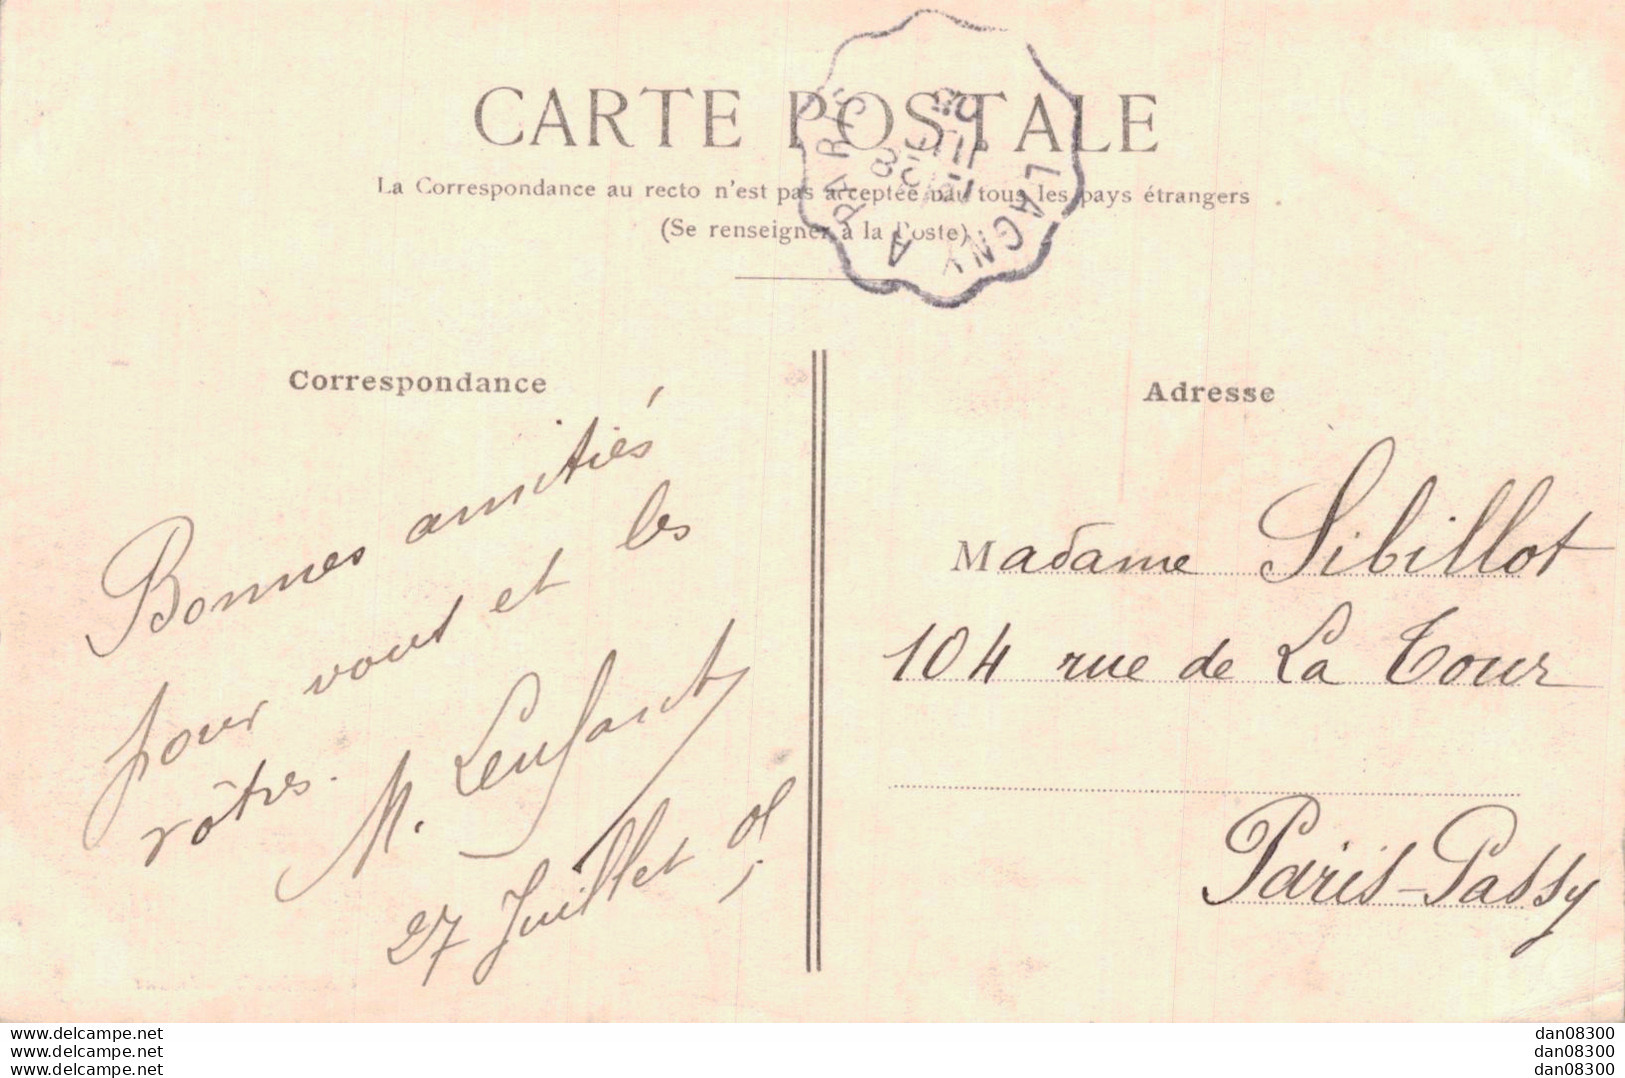 CARTE POSTALE
La Correspondance au recto n'est pas acceptée par tous les pays étrangers
(Se renseigner à la Poste)
LAGNY A PARIS
Correspondance
Bonnes amitiés
pour vous et les
vôtres.
M. Lenfant
27 Juillet
Adresse
Madame Sibillot
104 rue de La Tour
Paris-Passy
www.delcampe.net
www.delcampe.net
www.delcampe.net
dan08300
dan08300
dan08300